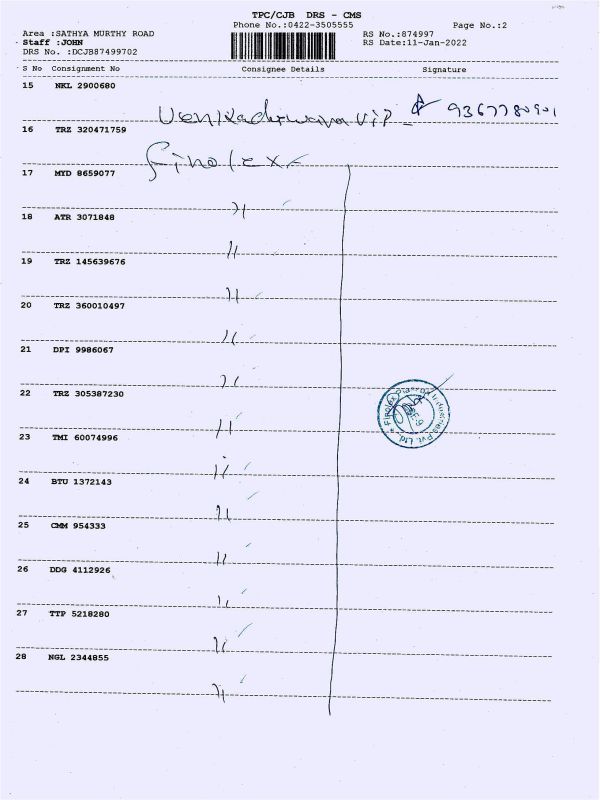 TPC/CJB DRS - CMS
Area :SATHYA MURTHY ROAD Phone No.:0422-3505555 Page No.:2
Staff :JOHN RS No.:874997
DRS No. :DCJB87499702 RS Date:11-Jan-2022
S No Consignment No Consignee Details Signature
15 NKL 2900680
9367780901
16 TRZ 320471759
Finolex
17 MYD 8659077
"
18 ATR 3071848
"
19 TRZ 145639676
"
20 TRZ 360010497
"
21 DPI 9986067
"
22 TRZ 305387230
"
23 TMI 60074996
"
24 BTU 1372143
"
25 CMM 954333
"
26 DDG 4112926
"
27 TTP 5218280
"
28 NGL 2344855
"